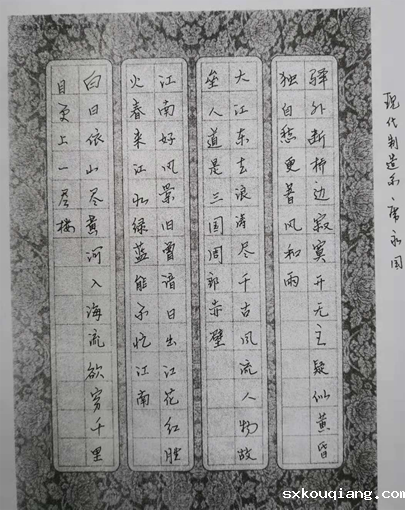 现代制造系 永国
驿外断桥边寂寞开无主疑似黄昏
独自愁更著风和雨
大江东去浪涛尽千古风流人物故
垒人道是三国周郎赤壁
江南好风景旧曾谙日出江花红胜
火春来江水绿蓝能不忆江南
白日依山尽黄河入海流欲穷千里
目更上一层楼
sxkouqiang.com